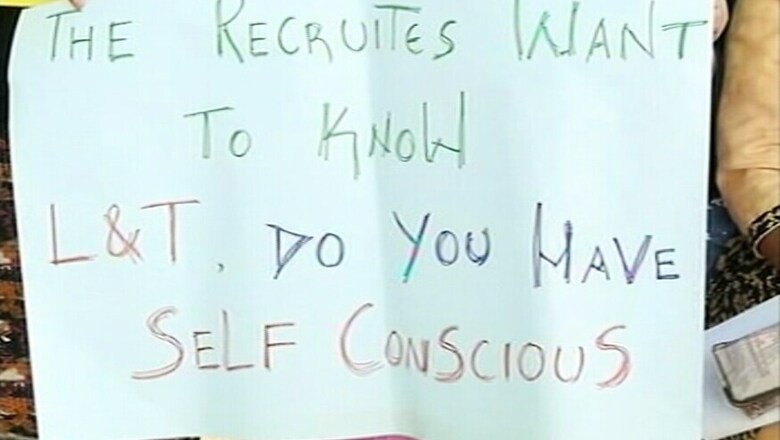 THE RECRUITES WANT
TO KNOW
L&T, DO YOU HAVE
SELF CONSCIOUS